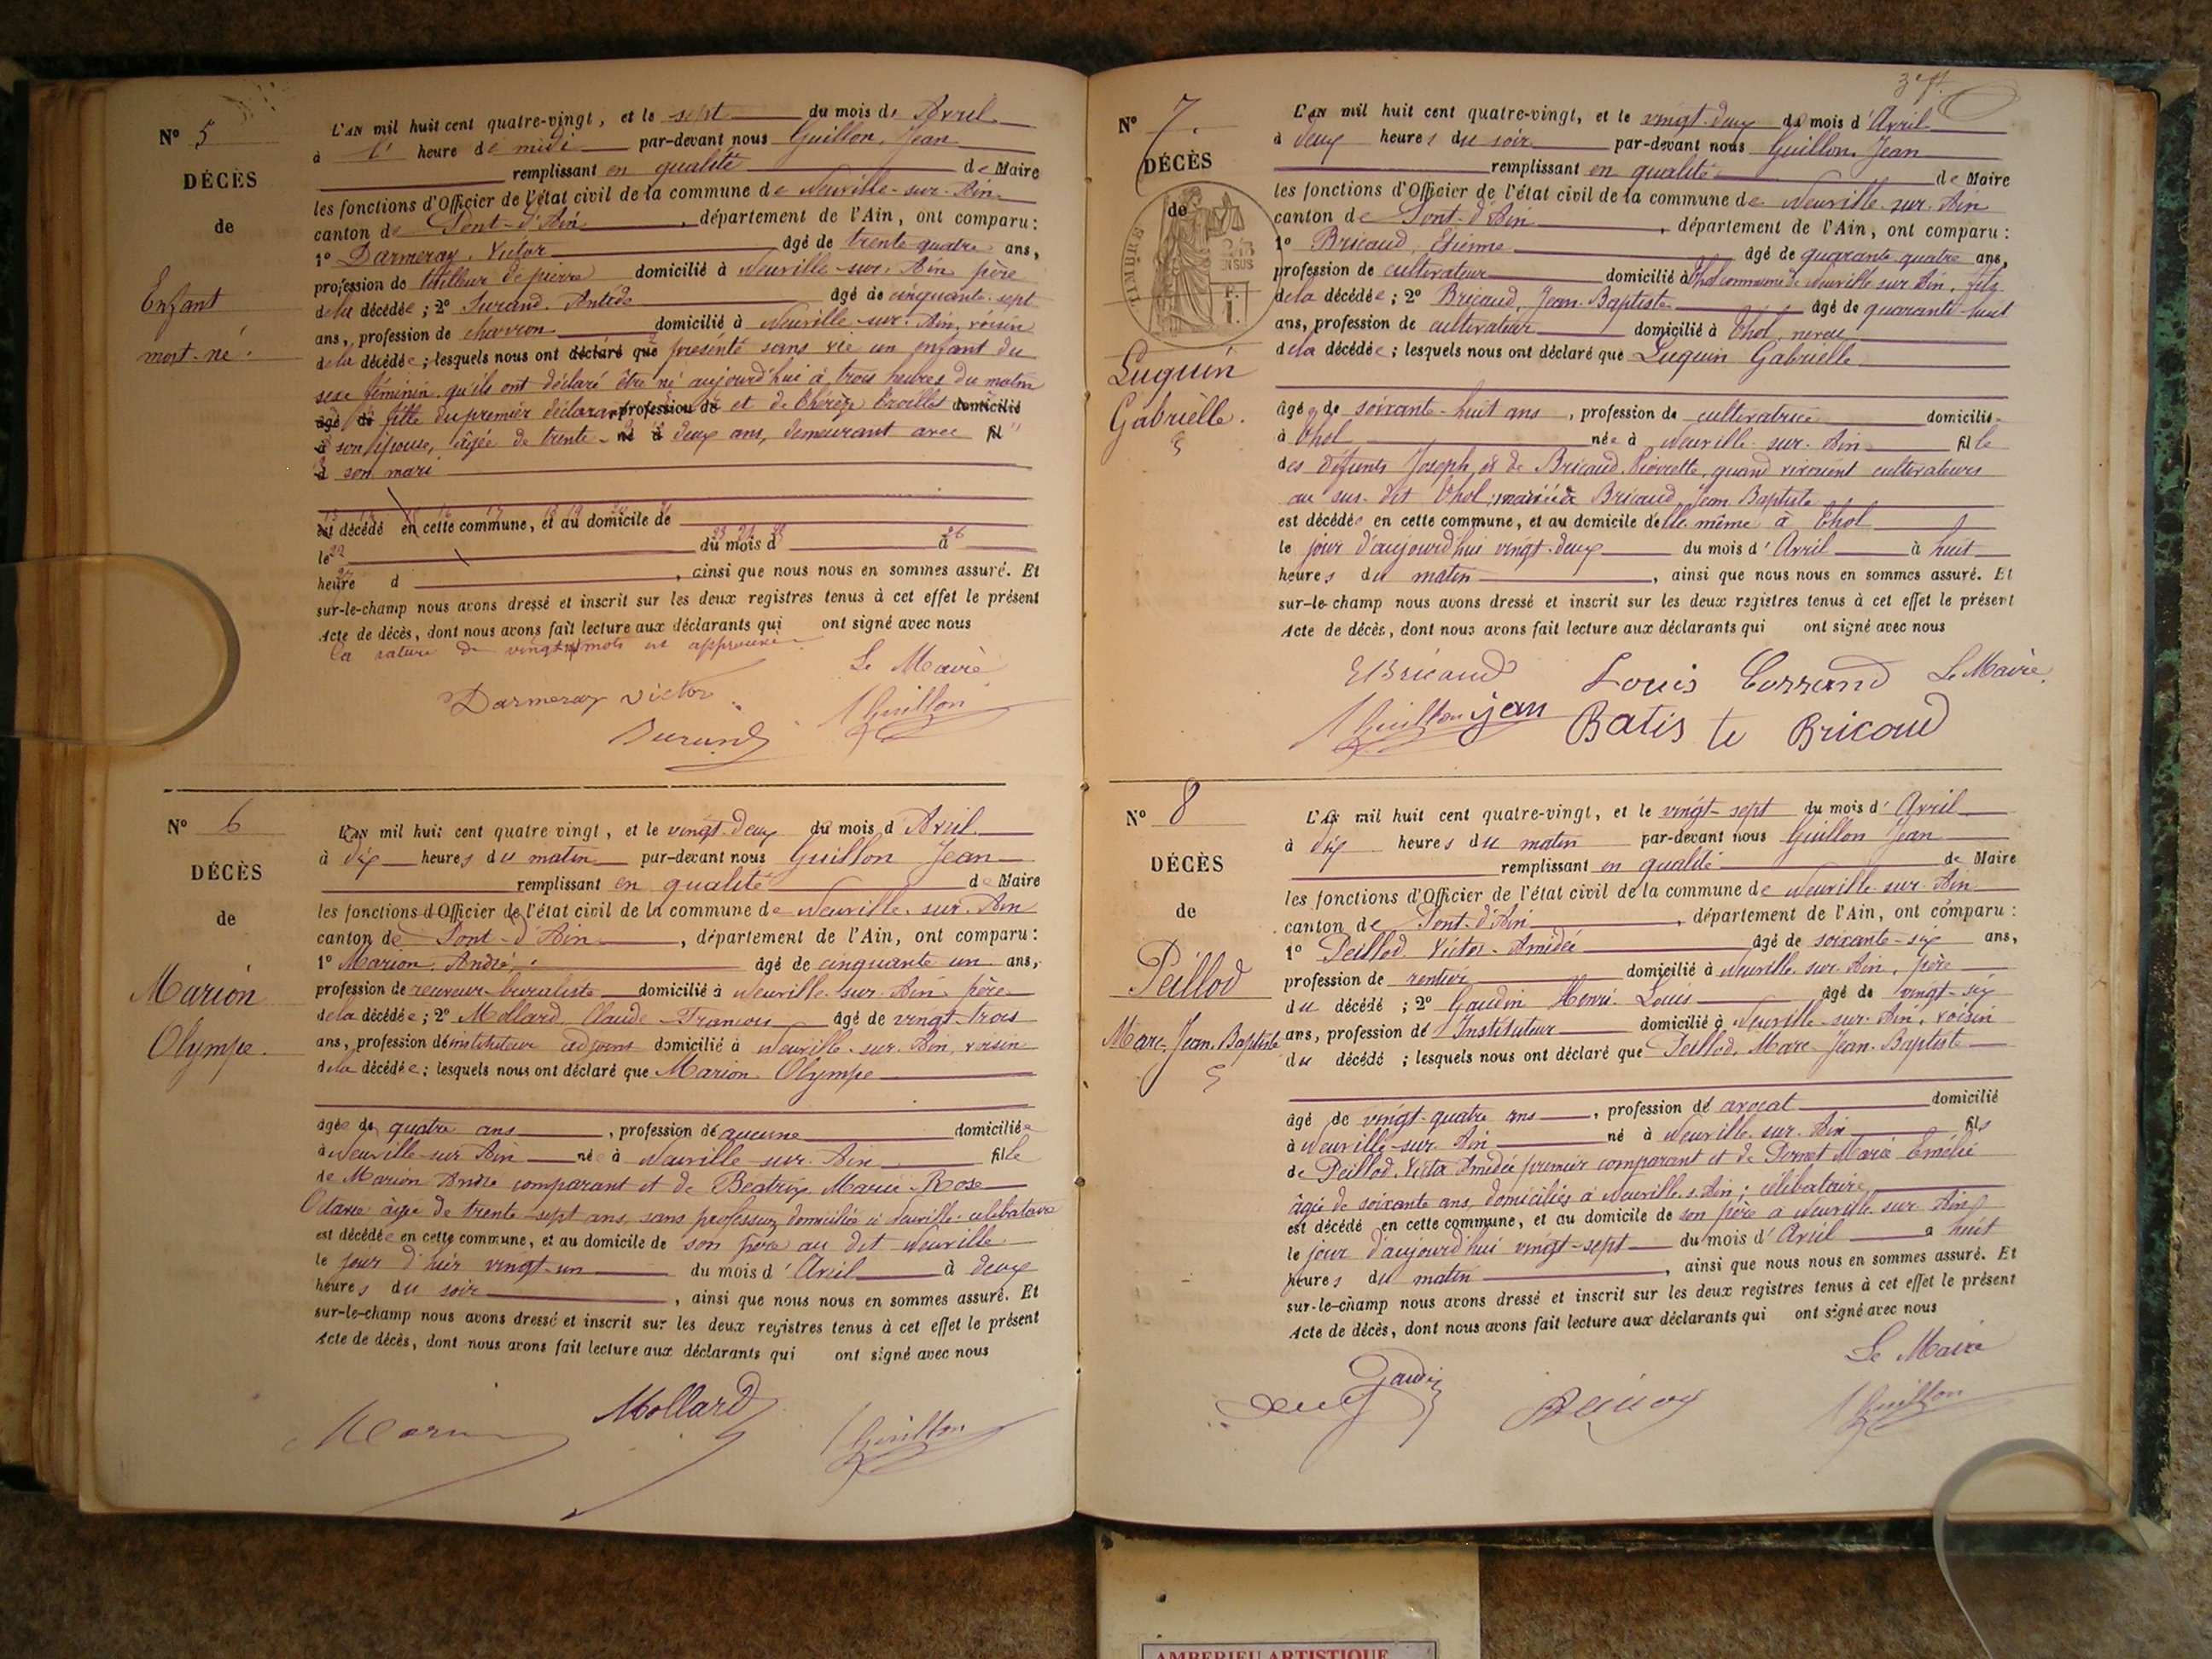 Nº 5
DÉCÈS
de
Enfant
mort-né.
L'AN mil huit cent quatre-vingt, et le sept du mois d' Avril
à 1' heure de midi par-devant nous Guillon, Jean
remplissant en qualité de Maire
les fonctions d'Officier de l'état civil de la commune de Neuville-sur-Ain
canton de Pont-d'Ain, département de l'Ain, ont comparu:
1º Darmeray, Victor âgé de trente quatre ans,
profession de tailleur de pierre domicilié à Neuville-sur-Ain père
de la décédée; 2º Durand, Antide âgé de cinquante-sept
ans, profession de charron domicilié à Neuville-sur-Ain, voisin
de la décédée; lesquels nous ont déclaré que présenté sans vie un enfant du
sexe féminin, qu'ils ont déclaré être né aujourd'hui à trois heures du matin
âgé de fille du premier déclarant profession de et de domicilié
à son épouse, âgée de trente-né à deux ans, demeurant avec fil
d son mari
est décédé en cette commune, et au domicile de
le du mois d à
heure d , ainsi que nous nous en sommes assuré. Et
sur-le-champ nous avons dressé et inscrit sur les deux registres tenus à cet effet le présent
Acte de décès, dont nous avons fait lecture aux déclarants qui ont signé avec nous
La rature de vingt mots est approuvée
Le Maire
Darmeray Victor
Guillon
Durand
Nº 6
DÉCÈS
de
Marion
Olympe.
L'AN mil huit cent quatre vingt, et le vingt-deux du mois d' Avril
à dix heures du matin par-devant nous Guillon Jean
remplissant en qualité de Maire
les fonctions d'Officier de l'état civil de la commune de Neuville-sur-Ain
canton de Pont-d'Ain, département de l'Ain, ont comparu:
1º Marion, André, âgé de cinquante un ans,
profession de receveur-buraliste domicilié à Neuville-sur-Ain père
de la décédée; 2º Mollard, Claude-François âgé de vingt-trois
ans, profession d'instituteur adjoint domicilié à Neuville-sur-Ain, voisin
de la décédée; lesquels nous ont déclaré que Marion Olympe
âgée de quatre ans, profession de aucune domiciliée
à Neuville-sur-Ain née à Neuville-sur-Ain fille
de Marion André comparant et de Beatrix Marie-Rose
Octavie âgée de trente-sept ans, sans profession domiciliée à Neuville: célibataire
est décédée en cette commune, et au domicile de son père au dit Neuville
le jour d'hier vingt-un du mois d' Avril à deux
heures du soir, ainsi que nous nous en sommes assuré. Et
sur-le-champ nous avons dressé et inscrit sur les deux registres tenus à cet effet le présent
Acte de décès, dont nous avons fait lecture aux déclarants qui ont signé avec nous
Marion Mollard Guillon
Nº 7.
DÉCÈS
de
TIMBRE
Luquin
Gabrielle.
L'AN mil huit cent quatre-vingt, et le vingt-deux du mois d' Avril
à deux heures du soir par-devant nous Guillon, Jean
remplissant en qualité de Maire
les fonctions d'Officier de l'état civil de la commune de Neuville-sur-Ain
canton de Pont-d'Ain, département de l'Ain, ont comparu:
1º Bricaud, Etienne âgé de quarante quatre ans,
profession de cultivateur domicilié à Thol commune de Neuville sur Ain, fils
de la décédée; 2º Bricaud, Jean-Baptiste âgé de quarante-huit
ans, profession de cultivateur domicilié à Thol, neveu
de la décédée; lesquels nous ont déclaré que Luquin Gabrielle
âgée de soixante-huit ans, profession de cultivatrice domiciliée
à Thol née à Neuville-sur-Ain fille
des défunts Joseph, et de Bricaud Pierrette, quand vivaient cultivateurs
au sus-dit Thol; mariée à Bricaud Jean Baptiste
est décédée en cette commune, et au domicile d'elle même à Thol
le jour d'aujourd'hui vingt-deux du mois d' Avril à huit
heures du matin, ainsi que nous nous en sommes assuré. Et
sur-le-champ nous avons dressé et inscrit sur les deux registres tenus à cet effet le présent
Acte de décès, dont nous avons fait lecture aux déclarants qui ont signé avec nous
E Bricaud Louis Le Maire
Guillon jean Batis te Bricaud
Nº 8
DÉCÈS
de
Peillod
Marc-Jean-Baptiste
L'AN mil huit cent quatre-vingt, et le vingt-sept du mois d' Avril
à dix heures du matin par-devant nous Guillon Jean
remplissant en qualité de Maire
les fonctions d'Officier de l'état civil de la commune de Neuville-sur-Ain
canton de Pont-d'Ain, département de l'Ain, ont comparu:
1º Peillod Victor-Amidée âgé de soixante-six ans,
profession de rentier domicilié à Neuville-sur-Ain, père
du décédé; 2º Gaudin Henri-Louis âgé de vingt-six
ans, profession d'Instituteur domicilié à Neuville-sur-Ain, voisin
du décédé; lesquels nous ont déclaré que Peillod, Marc-Jean-Baptiste
âgé de vingt-quatre ans, profession de avocat domicilié
à Neuville-sur-Ain né à Neuville-sur-Ain fils
de Peillod Victor Amidée premier comparant et de Marie Emélie
âgée de soixante ans, domiciliés à Neuville s. Ain; célibataire
est décédé en cette commune, et au domicile de son père à Neuville-sur-Ain
le jour d'aujourd'hui vingt-sept du mois d' Avril à huit
heures du matin, ainsi que nous nous en sommes assuré. Et
sur-le-champ nous avons dressé et inscrit sur les deux registres tenus à cet effet le présent
Acte de décès, dont nous avons fait lecture aux déclarants qui ont signé avec nous
Le Maire
Gaudin
Guillon
AMBERIEU ARTISTIQUE